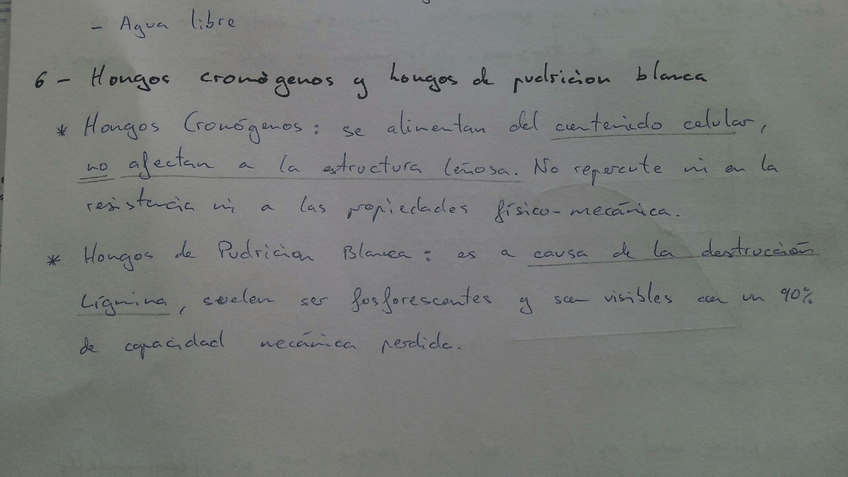 - Agua libre
6 - Hongos cromógenos y hongos de pudrición blanca
* Hongos Cromógenos: se alimentan del contenido celular,
no afectan a la estructura leñosa. No repercute ni en la
resistencia ni a las propiedades físico-mecánica.
* Hongos de Pudrición Blanca: es a causa de la destrucción
Lignina, suelen ser fosforescentes y son visibles con un 90%
de capacidad mecánica perdida.